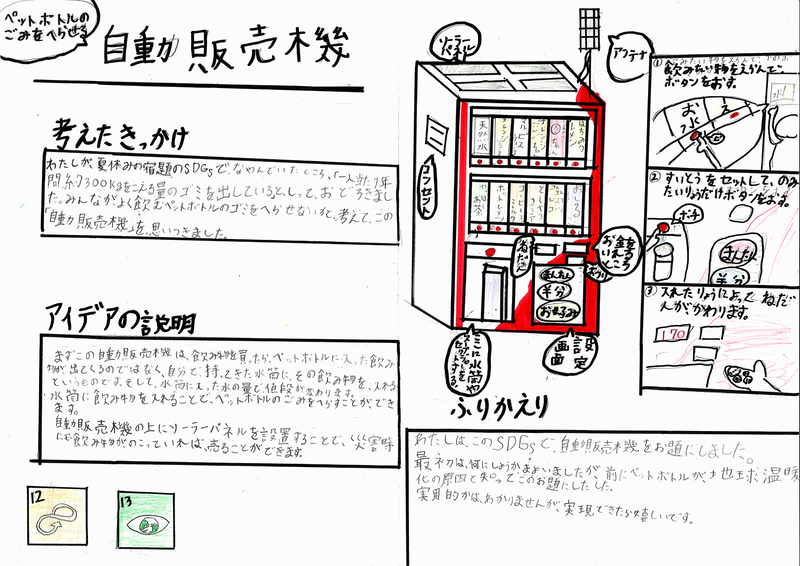 ペットボトルの
ごみをへらせる
自動販売機
考えたきっかけ
わたしが、夏休みの宿題のSDGsで、なやんでいたところ、「一人当たり年
間約300kgをこえる量のゴミを出しているとしって、おどろきまし
た。みんながよく飲むペットボトルのゴミをへらせないかと、考えて、この
「自動販売機」を、思いつきました。
アイデアの説明
まずこの自動販売機は、飲み物を買ったら、ペットボトルに入った飲み
物が出てくるのではなく、自分で、持ってきた水筒に、その飲み物を、入れる
というものです。そして、水筒に入った水の量で値段が変わります。
水筒に飲み物を入れることで、ペットボトルのごみをへらすことができ
ます。
自動販売機の上にソーラーパネルを設置することで、災害時
にも飲み物がのこっていれば、売ることができます。
12
13
ソーラー
パネル
アンテナ
コンセント
天然水
お金を
入れる
ところ
まんたん
半分
おこのみ
設定
画面
ここに水筒や
①
飲みたい物をえらんで、
ボタンをおす。
お水
②
すいとうをセットして、のみ
たいりょうだけボタンをおす。
ポチ
まんたん
半分
③
入れたりょうによって ねだ
んがかわります。
170
ふりかえり
わたしは、このSDGsで、自動販売機をお題にしました。
最初は、何にしようかまよいましたが、前にペットボトルが地球温暖
化の原因と知ってこのお題にしたした。
実用的かは、わかりませんが、実現できたら嬉しいです。